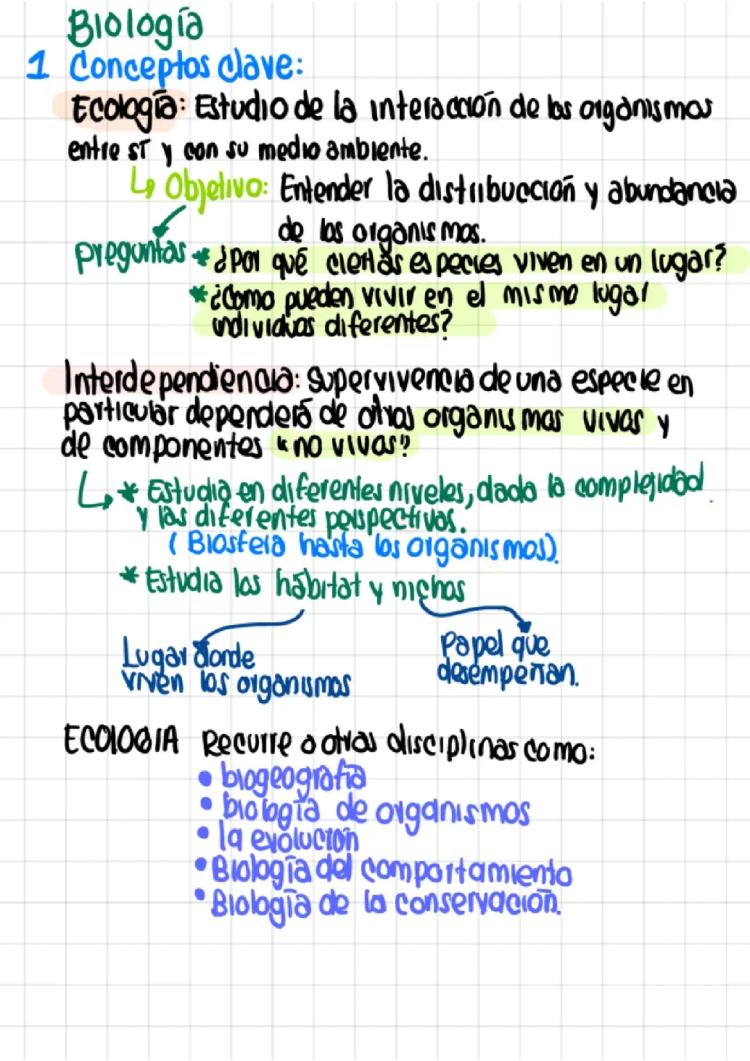 Biología
1 Conceptos clave:
Ecología: Estudio de la interacción de los organismos
entre sí y con su medio ambiente.
↳ Objetivo: Entender la distribucción y abundancia
de los organismos.
preguntas * ¿Por qué ciertas especies viven en un lugar?
* ¿Como pueden vivir en el mismo lugar
individuos diferentes?
Interdependiencia: Supervivencia de una especie en
particular dependerá de otros organismos vivos y
de componentes "no vivos"
↳ * Estudia en diferentes niveles, dada la complejidad
y las diferentes perspectivas.
(Biosfera hasta los organismos).
* Estudia los hábitat y nichos
Lugar donde
viven los organismos
Papel que
desempeñan.
ECOLOGIA Recurre a otras disciplinas como:
• biogeografía
• biología de organismos
• la evolución
• Biología del comportamiento
• Biología de la conservación.